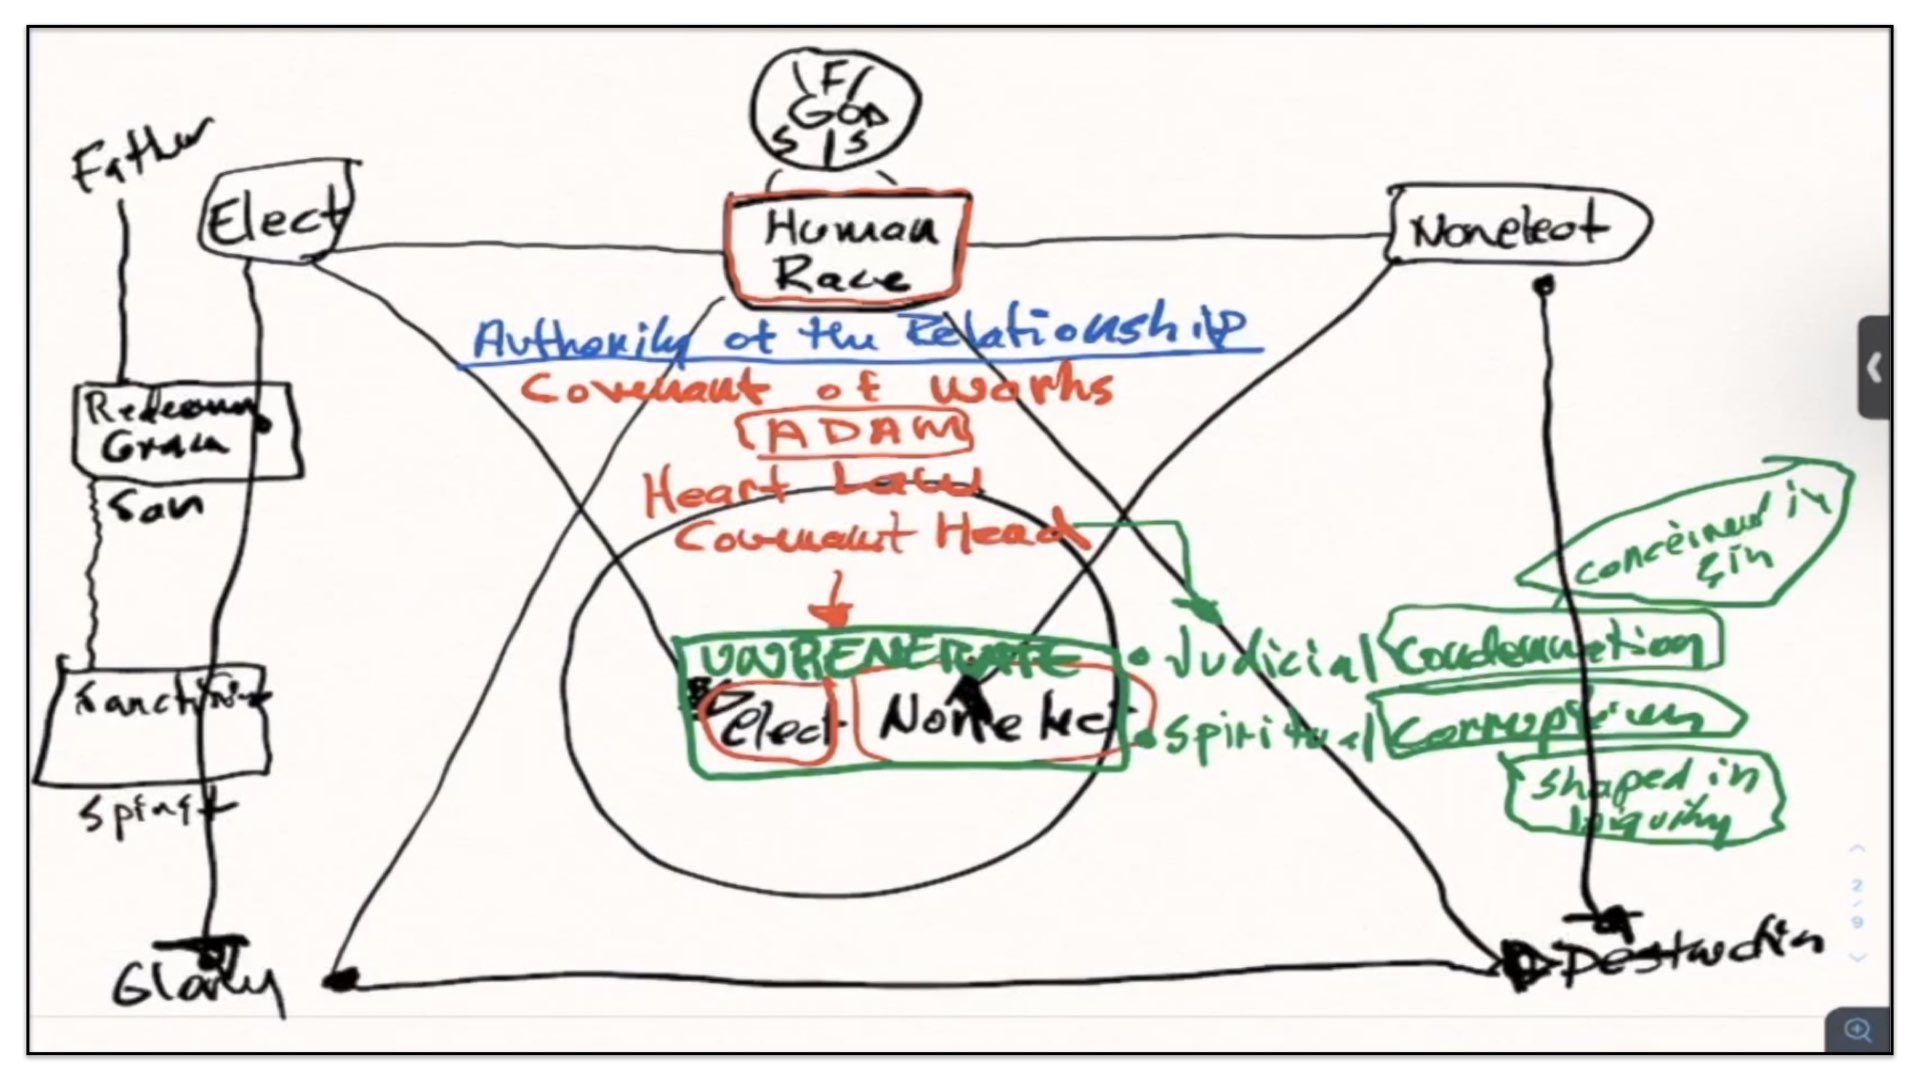 F
GOD
S S
Father
Elect
Human
Race
Nonelect
Authority of the Relationship
Covenant of Works
ADAM
Heart Law
Covenant Head
Grace
Son
conceived in
Sin
Elect
Nonelect
• Judicial Condemnation
• Spiritual Corruption
shaped in
Iniquity
Spirit
Glory
Destruction
2
/
9